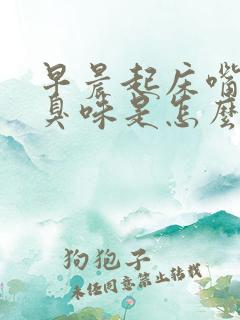 早晨起床嘴
臭味是怎么
狗狍子
未经同意禁止转载